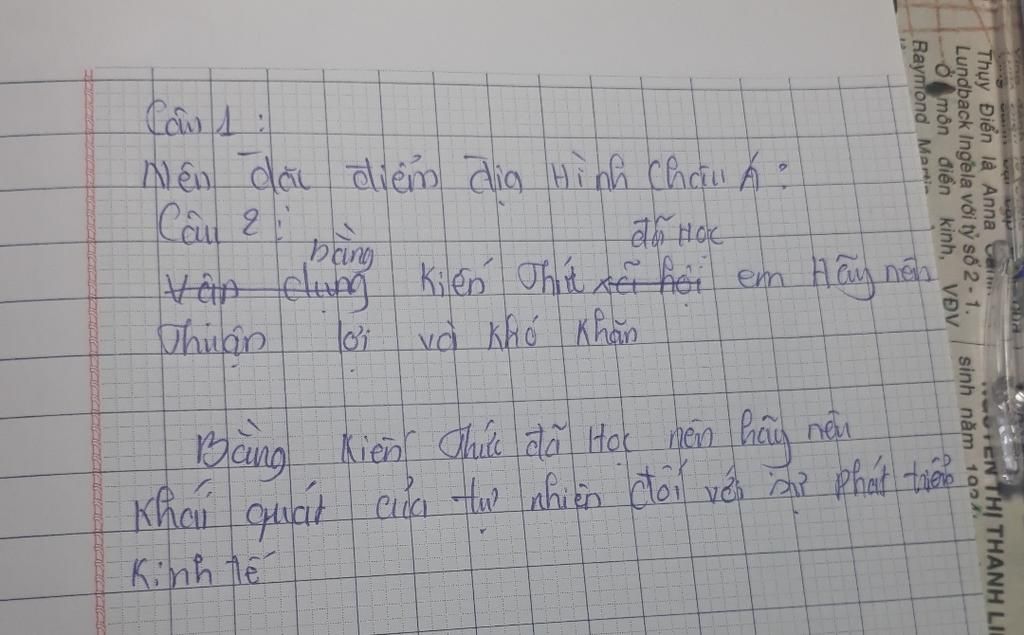 Câu 1:
Nên đặc điểm địa Hình Châu Á:
Câu 2:
bằng đã Học
Vận dụng Kiến Thức xã hội em Hãy nên
Thuận lợi và Khó Khăn
Bằng Kiến Thức đã Học nên hãy nêu
Khái quát của tự nhiên đối với sự phát triển
Kinh tế
Thụy Điển là Anna
Lundback Ingela với tỷ số 2 - 1.
Ở môn điền kinh, VĐV
Raymond
sinh năm
THỊ THANH